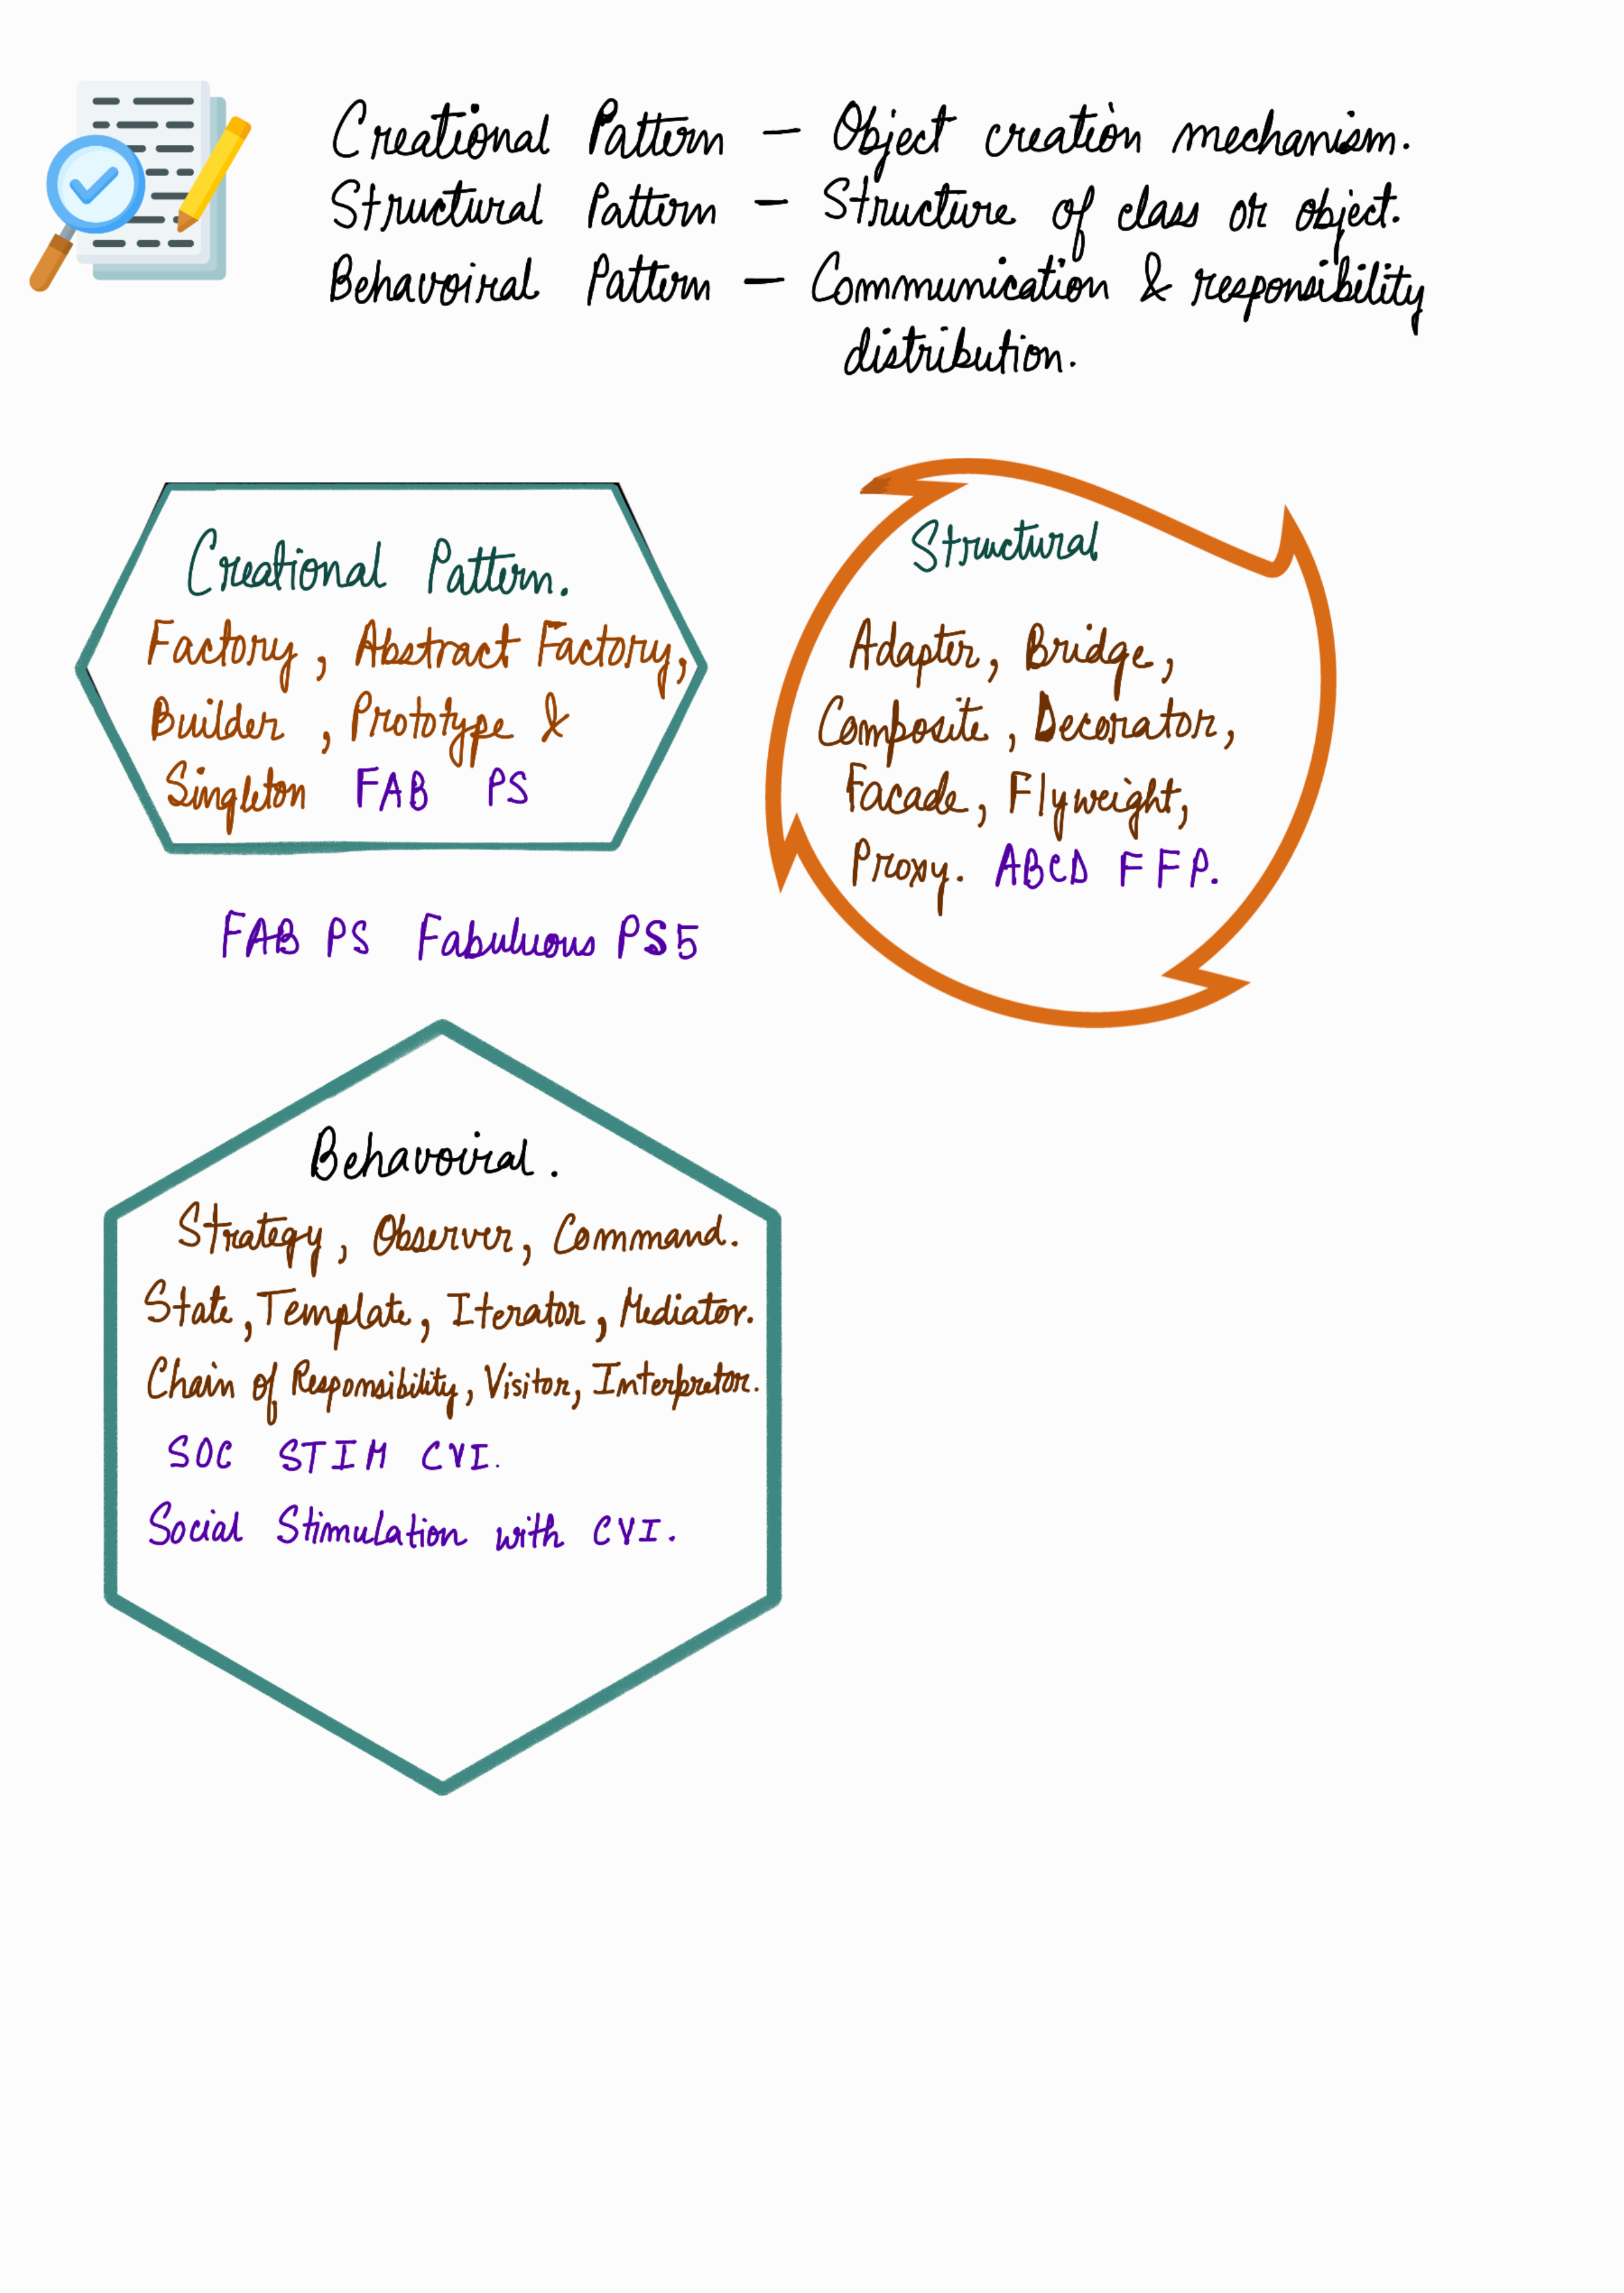 Creational Pattern — Object creation mechanism.
Structural Pattern — Structure of class or object.
Behavoiral Pattern — Communication & responsibility
distribution.
Creational Pattern.
Factory, Abstract Factory,
Builder, Prototype &
Singleton FAB PS
FAB PS Fabuluous PS5
Structural
Adapter, Bridge,
Composite, Decorator,
Facade, Flyweight,
Proxy. ABCD FFP.
Behavoiral.
Strategy, Observer, Command.
State, Template, Iterator, Mediator.
Chain of Responsibility, Visitor, Interpretor.
SOC STIM CVI.
Social Stimulation with CVI.